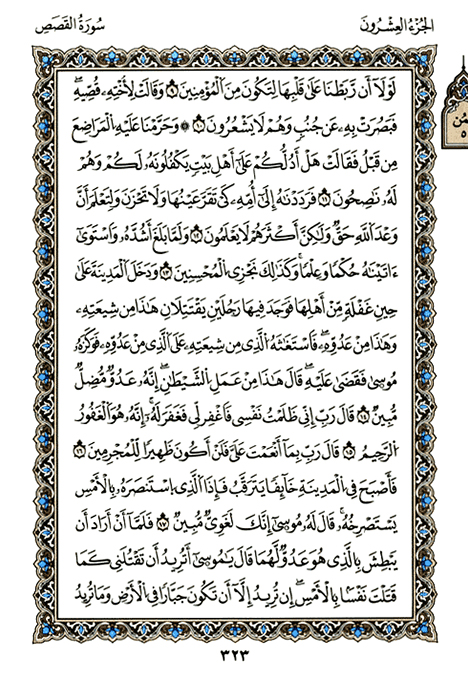 سُورَةُ القَصَصِ
الجُزْءُ العِشْرُونَ
لَوْلَا أَن رَّبَطْنَا عَلَىٰ قَلْبِهَا لِتَكُونَ مِنَ اَلْمُؤْمِنِينَ ٩ وَقَالَتْ لِأُخْتِهِۦ قُصِّيهِۖ
فَبَصُرَتْ بِهِۦ عَن جُنُبٍ وَهُمْ لَا يَشْعُرُونَ ١٠ ۞ وَحَرَّمْنَا عَلَيْهِ اِلْمَرَاضِعَ
مِن قَبْلُ فَقَالَتْ هَلْ أَدُلُّكُمْ عَلَىٰ أَهْلِ بَيْتٍ يَكْفُلُونَهُۥ لَكُمْ وَهُمْ
لَهُۥ نَٰصِحُونَ ١١ فَرَدَدْنَٰهُ إِلَىٰ أُمِّهِۦ كَيْ تَقَرَّ عَيْنُهَا وَلَا تَحْزَنَ وَلِتَعْلَمَ أَنَّ
وَعْدَ اَللَّهِ حَقٌّ وَلَٰكِنَّ أَكْثَرَهُمْ لَا يَعْلَمُونَ ١٢ وَلَمَّا بَلَغَ أَشُدَّهُۥ وَاسْتَوَىٰ
ءَاتَيْنَٰهُ حُكْمًا وَعِلْمًاۚ وَكَذَٰلِكَ نَجْزِي اِلْمُحْسِنِينَ ١٣ وَدَخَلَ اَلْمَدِينَةَ عَلَىٰ
حِينِ غَفْلَةٍ مِّنْ أَهْلِهَا فَوَجَدَ فِيهَا رَجُلَيْنِ يَقْتَتِلَانِ هَٰذَا مِن شِيعَتِهِۦ
وَهَٰذَا مِنْ عَدُوِّهِۦۖ فَاسْتَغَٰثَهُ اُلَّذِي مِن شِيعَتِهِۦ عَلَى اَلَّذِي مِنْ عَدُوِّهِۦ فَوَكَزَهُۥ
مُوسَىٰ فَقَضَىٰ عَلَيْهِۖ قَالَ هَٰذَا مِنْ عَمَلِ اِلشَّيْطَٰنِۖ إِنَّهُۥ عَدُوٌّ مُّضِلٌّ
مُّبِينٌ ١٤ قَالَ رَبِّ إِنِّي ظَلَمْتُ نَفْسِي فَاغْفِرْ لِي فَغَفَرَ لَهُۥۚ إِنَّهُۥ هُوَ اَلْغَفُورُ
اُلرَّحِيمُ ١٥ قَالَ رَبِّ بِمَا أَنْعَمْتَ عَلَيَّ فَلَنْ أَكُونَ ظَهِيرًا لِّلْمُجْرِمِينَ ١٦
فَأَصْبَحَ فِي اِلْمَدِينَةِ خَآئِفًا يَتَرَقَّبُ فَإِذَا اَلَّذِي اِسْتَنصَرَهُۥ بِالْأَمْسِ
يَسْتَصْرِخُهُۥۚ قَالَ لَهُۥ مُوسَىٰ إِنَّكَ لَغَوِيٌّ مُّبِينٌ ١٧ فَلَمَّا أَنْ أَرَادَ أَن
يَبْطِشَ بِالَّذِي هُوَ عَدُوٌّ لَّهُمَا قَالَ يَٰمُوسَىٰ أَتُرِيدُ أَن تَقْتُلَنِي كَمَا
قَتَلْتَ نَفْسًا بِالْأَمْسِۖ إِن تُرِيدُ إِلَّا أَن تَكُونَ جَبَّارًا فِي اِلْأَرْضِ وَمَا تُرِيدُ
٣٢٣